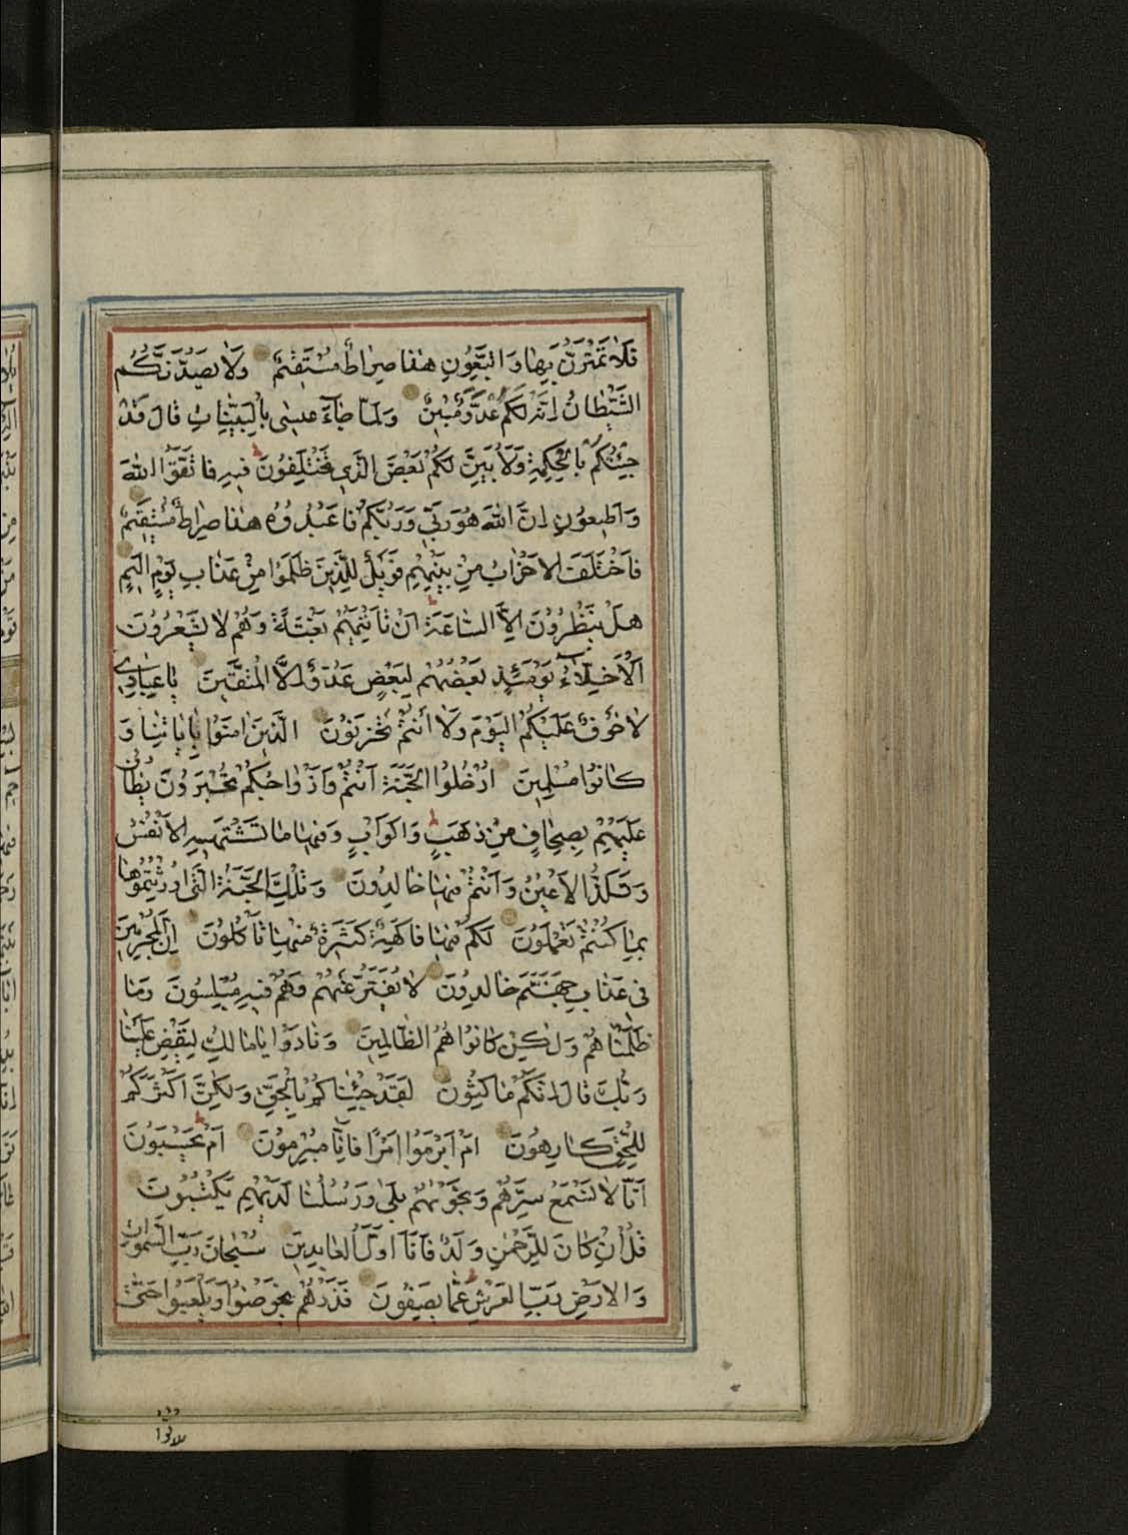 فَلَا تَمْتَرُنَّ بِهَا وَاتَّبِعُونِ هٰذَا صِرَاطٌ مُسْتَقِيمٌ وَلَا يَصُدَّنَّكُمُ
الشَّيْطَانُ اِنَّهُ لَكُمْ عَدُوٌّ مُبِينٌ وَلَمَّا جَاءَ عِيسٰى بِالْبَيِّنَاتِ قَالَ قَدْ
جِئْتُكُمْ بِالْحِكْمَةِ وَلِاُبَيِّنَ لَكُمْ بَعْضَ الَّذِي تَخْتَلِفُونَ فِيهِ فَاتَّقُوا اللّٰهَ
وَاَطِيعُونِ اِنَّ اللّٰهَ هُوَ رَبِّي وَرَبُّكُمْ فَاعْبُدُوهُ هٰذَا صِرَاطٌ مُسْتَقِيمٌ
فَاخْتَلَفَ الْاَحْزَابُ مِنْ بَيْنِهِمْ فَوَيْلٌ لِلَّذِينَ ظَلَمُوا مِنْ عَذَابِ يَوْمٍ اَلِيمٍ
هَلْ يَنْظُرُونَ اِلَّا السَّاعَةَ اَنْ تَاْتِيَهُمْ بَغْتَةً وَهُمْ لَا يَشْعُرُونَ
اَلْاَخِلَّاءُ يَوْمَئِذٍ بَعْضُهُمْ لِبَعْضٍ عَدُوٌّ اِلَّا الْمُتَّقِينَ يَا عِبَادِي
لَا خَوْفٌ عَلَيْكُمُ الْيَوْمَ وَلَا اَنْتُمْ تَحْزَنُونَ الَّذِينَ اٰمَنُوا بِاٰيَاتِنَا وَ
كَانُوا مُسْلِمِينَ ادْخُلُوا الْجَنَّةَ اَنْتُمْ وَاَزْوَاجُكُمْ تُحْبَرُونَ يُطَافُ
عَلَيْهِمْ بِصِحَافٍ مِنْ ذَهَبٍ وَاَكْوَابٍ وَفِيهَا مَا تَشْتَهِيهِ الْاَنْفُسُ
وَتَلَذُّ الْاَعْيُنُ وَاَنْتُمْ فِيهَا خَالِدُونَ وَتِلْكَ الْجَنَّةُ الَّتِي اُورِثْتُمُوهَا
بِمَا كُنْتُمْ تَعْمَلُونَ لَكُمْ فِيهَا فَاكِهَةٌ كَثِيرَةٌ مِنْهَا تَاْكُلُونَ اِنَّ الْمُجْرِمِينَ
فِي عَذَابِ جَهَنَّمَ خَالِدُونَ لَا يُفَتَّرُ عَنْهُمْ وَهُمْ فِيهِ مُبْلِسُونَ وَمَا
ظَلَمْنَاهُمْ وَلٰكِنْ كَانُوا هُمُ الظَّالِمِينَ وَنَادَوْا يَا مَالِكُ لِيَقْضِ عَلَيْنَا
رَبُّكَ قَالَ اِنَّكُمْ مَاكِثُونَ لَقَدْ جِئْنَاكُمْ بِالْحَقِّ وَلٰكِنَّ اَكْثَرَكُمْ
لِلْحَقِّ كَارِهُونَ اَمْ اَبْرَمُوا اَمْرًا فَاِنَّا مُبْرِمُونَ اَمْ يَحْسَبُونَ
اَنَّا لَا نَسْمَعُ سِرَّهُمْ وَنَجْوٰيهُمْ بَلٰى وَرُسُلُنَا لَدَيْهِمْ يَكْتُبُونَ
قُلْ اِنْ كَانَ لِلرَّحْمٰنِ وَلَدٌ فَاَنَا اَوَّلُ الْعَابِدِينَ سُبْحَانَ رَبِّ السَّمٰوَاتِ
وَالْاَرْضِ رَبِّ الْعَرْشِ عَمَّا يَصِفُونَ فَذَرْهُمْ يَخُوضُوا وَيَلْعَبُوا حَتّٰى